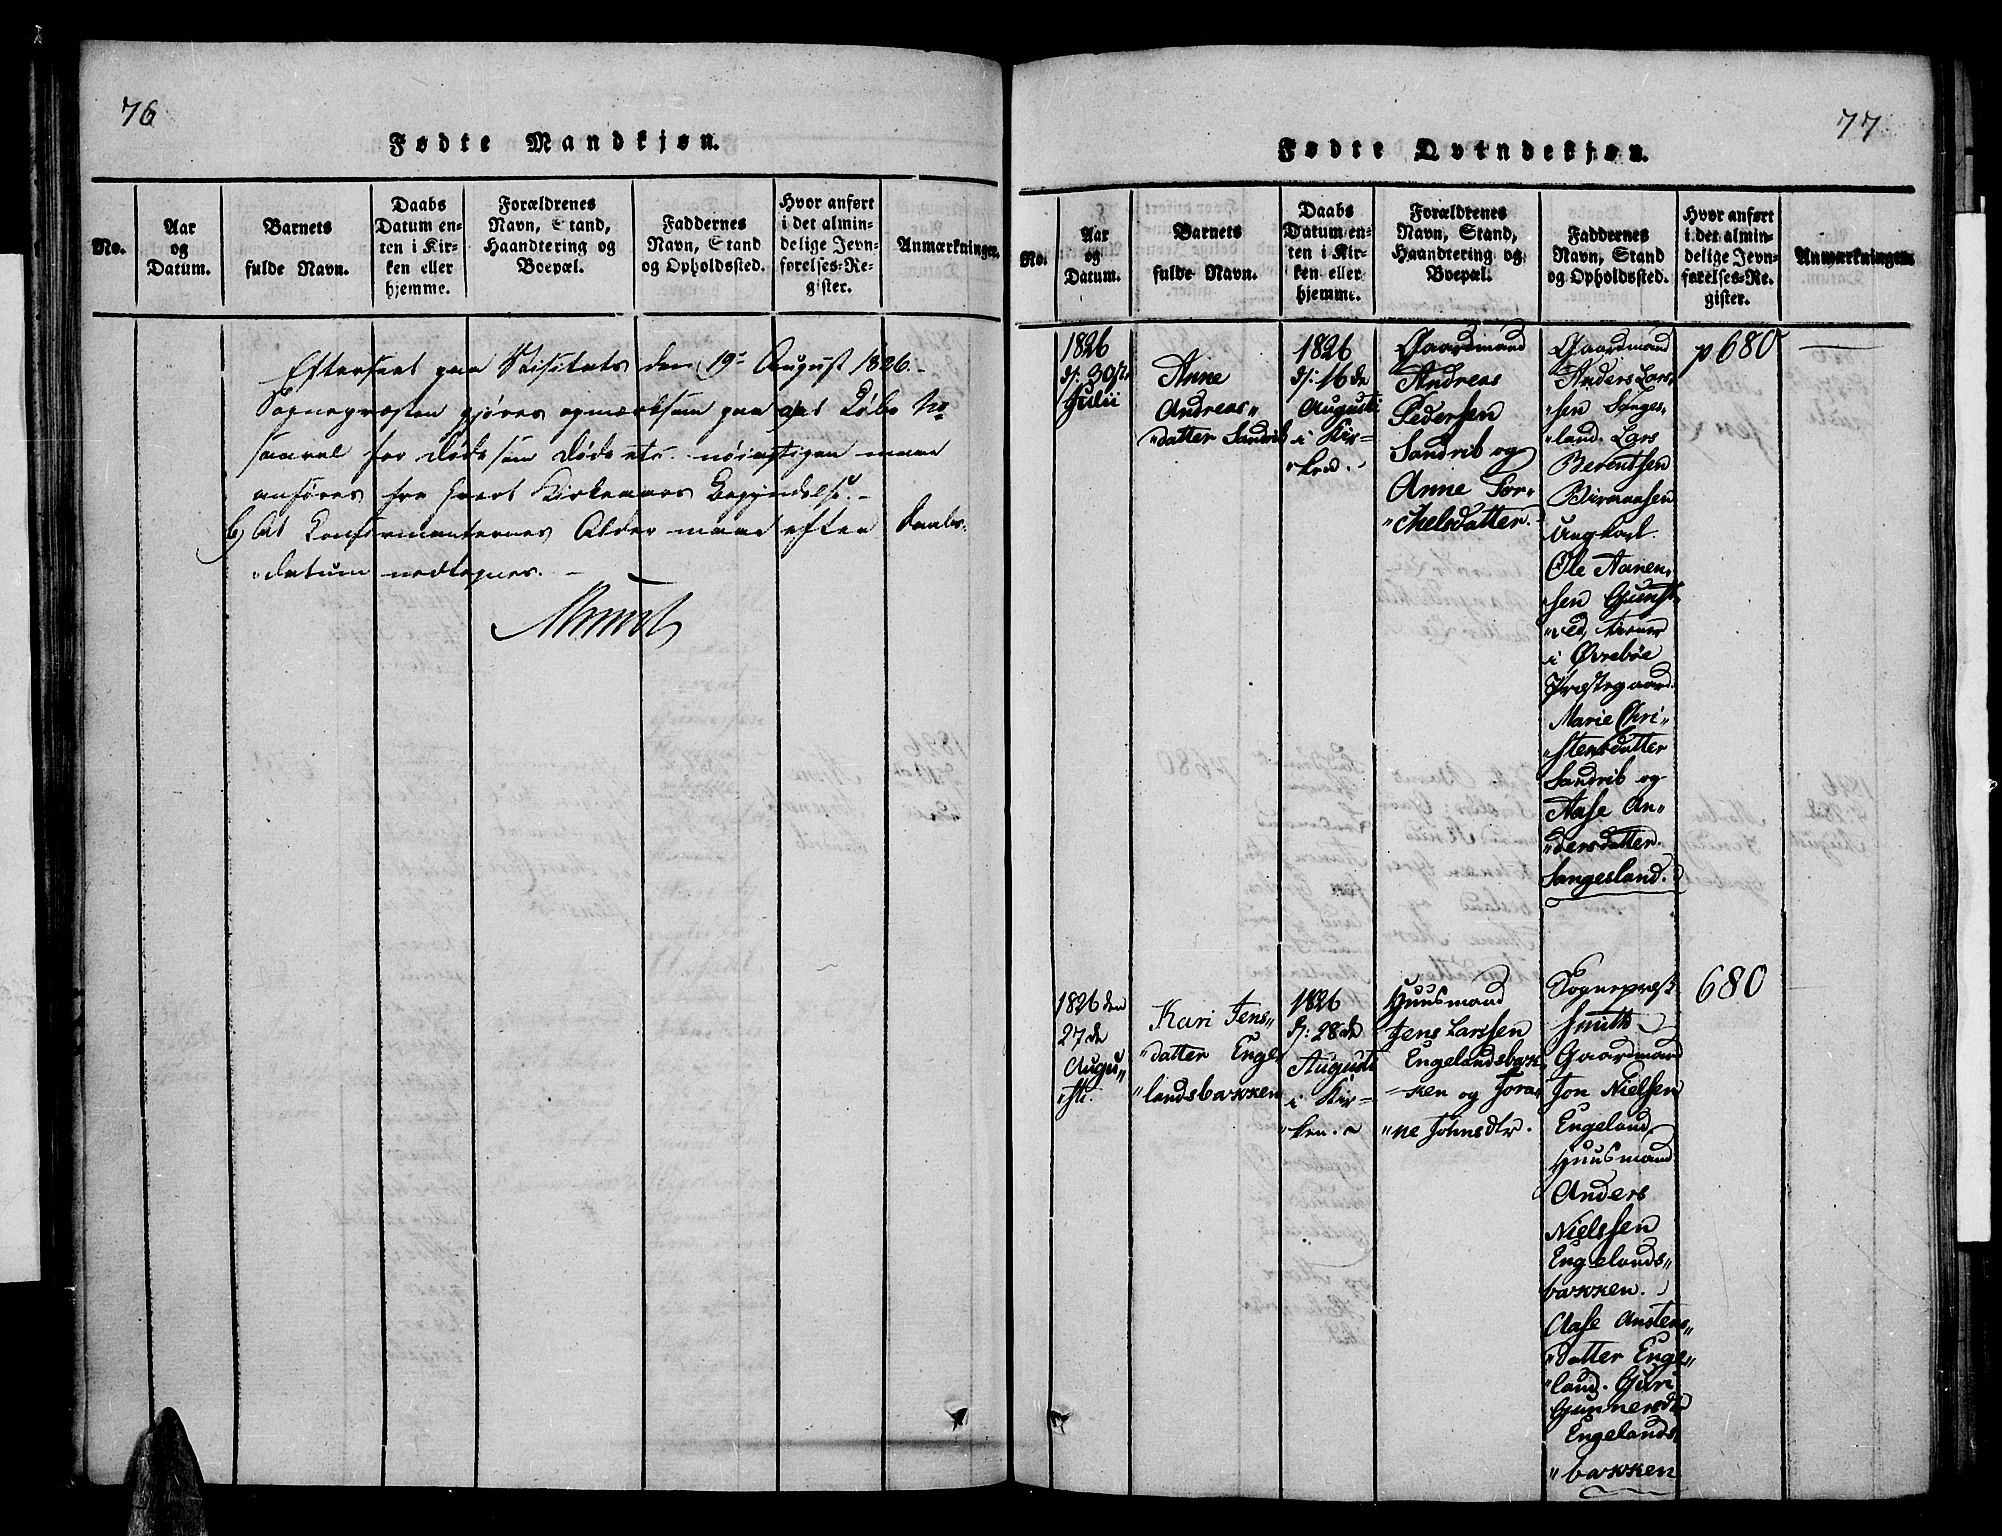 76
Fødte Mandkjøn.
No.
Aar
og
Datum.
Barnets
fulde Navn.
Daabs
Datum en-
ten i Kir-
ken eller
hjemme.
Forældrenes
Navn, Stand,
Haandtering og
Boepæl.
Faddernes
Navn, Stand
og Opholdssted.
Hvor anført
i det almin-
delige Jevn-
førelses-Re-
gister.
Anmærkninger.
Efterseet paa Visitats den 19de August 1826.
Sognepræsten gjøres opmærksom paa at Løbe No
saavel for døbte som døde etc. nøiagtigen maae
anføres fra hvert Kirkeaars Begyndelse.
b) At Confirmanternes Alder maae efter Daabs-
"datum nedtegnes.
77
Fødte Qvindekjøn.
No.
Aar
og
Datum.
Barnets
fulde Navn.
Daabs
Datum en-
ten i Kir-
ken eller
hjemme.
Forældrenes
Navn, Stand,
Haandtering og
Boepæl.
Faddernes
Navn, Stand
og Opholdssted.
Hvor anført
i det almin-
delige Jevn-
førelses-Re-
gister.
Anmærkninger.
1826
d: 30te
Julii
Anne
Andreas"
"datter Sandrib
1826
d: 16de
Augusti
i Kir=
"ken.
Gaardmand
Andreas
Pedersen
Sandrib og
Anne Tor"
"kelsdatter.
Gaardmand
Anders Lars"
"sen Sanges"
"land. Lars
Berentsen
Ungkarl.
Ole Aanen"
"sen
i Øvrebøe
Præstegaard.
Marie Chri"
"stensdatter
Sandrib og
Aase An"
"dersdatter.
Sangesland.
p 680
1826 den
27de
Augu"
"sti.
Kari Jens"
"datter Enge"
"landsbakken
1826
d: 28de
Augusti
i Kir=
"ken.
Huusmand
Jens Larssen
Engelandsbak"
"ken og Jora"
"ne Johnsdtr.
Sognepræst
Smith
Gaardmand
Jon Nielsen
Engeland
Huusmand
Anders
Nielssen
Engelands"
bakken.
Aase Austens"
"datter Enge"
"land. Guri
Gunnersdtr
Engelands"
"bakken
680